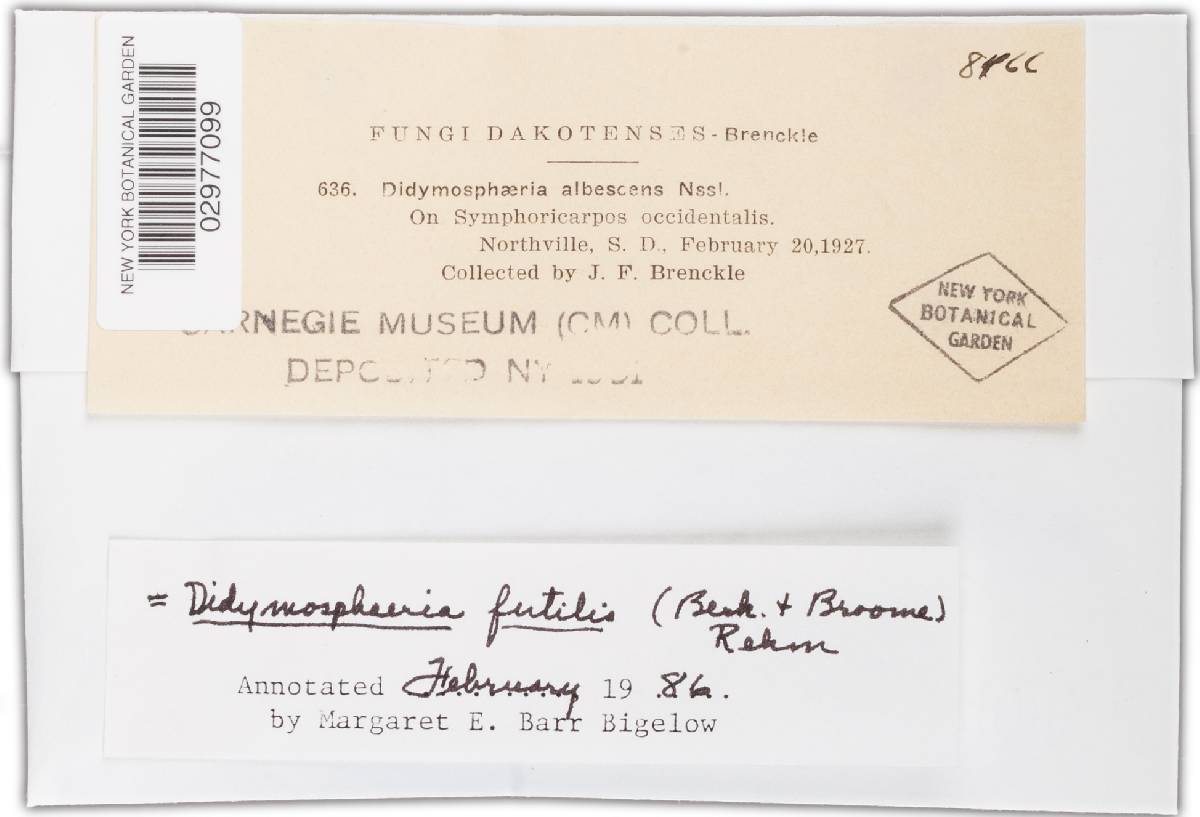 NEW YORK BOTANICAL GARDEN
02977099
FUNGI DAKOTENSES - Brenckle
636. Didymosphæria albescens Nssl.
On Symphoricarpos occidentalis.
Northville, S. D., February 20,1927.
Collected by J. F. Brenckle
CARNEGIE MUSEUM (CM) COLL.
DEPOSITED NY
NEW YORK
BOTANICAL
GARDEN
= Didymosphaeria futilis (Berk. + Broome)
Rehm
Annotated February 1986.
by Margaret E. Barr Bigelow